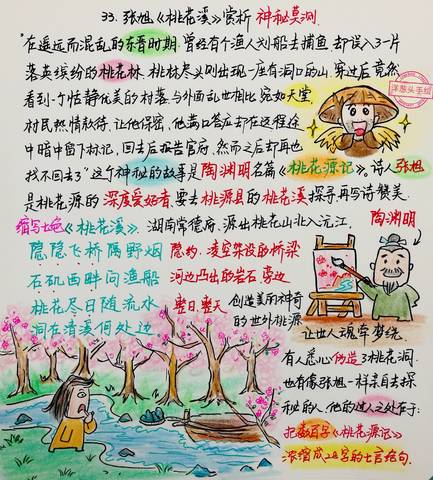 33. 张旭《桃花溪》赏析 神秘莫测
"在遥远而混乱的东晋时期,曾经有个渔人划船去捕鱼,却误入了一片
落英缤纷的桃花林,桃林尽头则出现一座有洞口的山,穿过后竟然
看到一个恬静优美的村落,与外面乱世相比宛如天堂,
村民热情款待,让他保密,他满口答应却在返程途
中暗中留下标记,回去后报告官府,然而之后却再也
找不回去了"这个神秘的故事是陶渊明名篇《桃花源记》。诗人张旭
是桃花源的深度爱好者,要去桃源县的桃花溪探寻再写诗赞美.
洋葱头手绘
缩写七绝《桃花溪》.湖南常德府,源出桃花山北入沅江.
陶渊明
隐隐飞桥隔野烟 隐约.凌空架设的桥梁
石矶西畔问渔船 河边凸出的岩石.旁边
桃花尽日随流水 整日.整天
洞在清溪何处边
创造美丽神奇
的世外桃源
让世人魂牵梦绕.
有人悉心伪造了桃花洞.
也有像张旭一样亲自去探
秘的人,他的过人之处在于:
把数百字《桃花源记》
浓缩成28字的七言绝句.